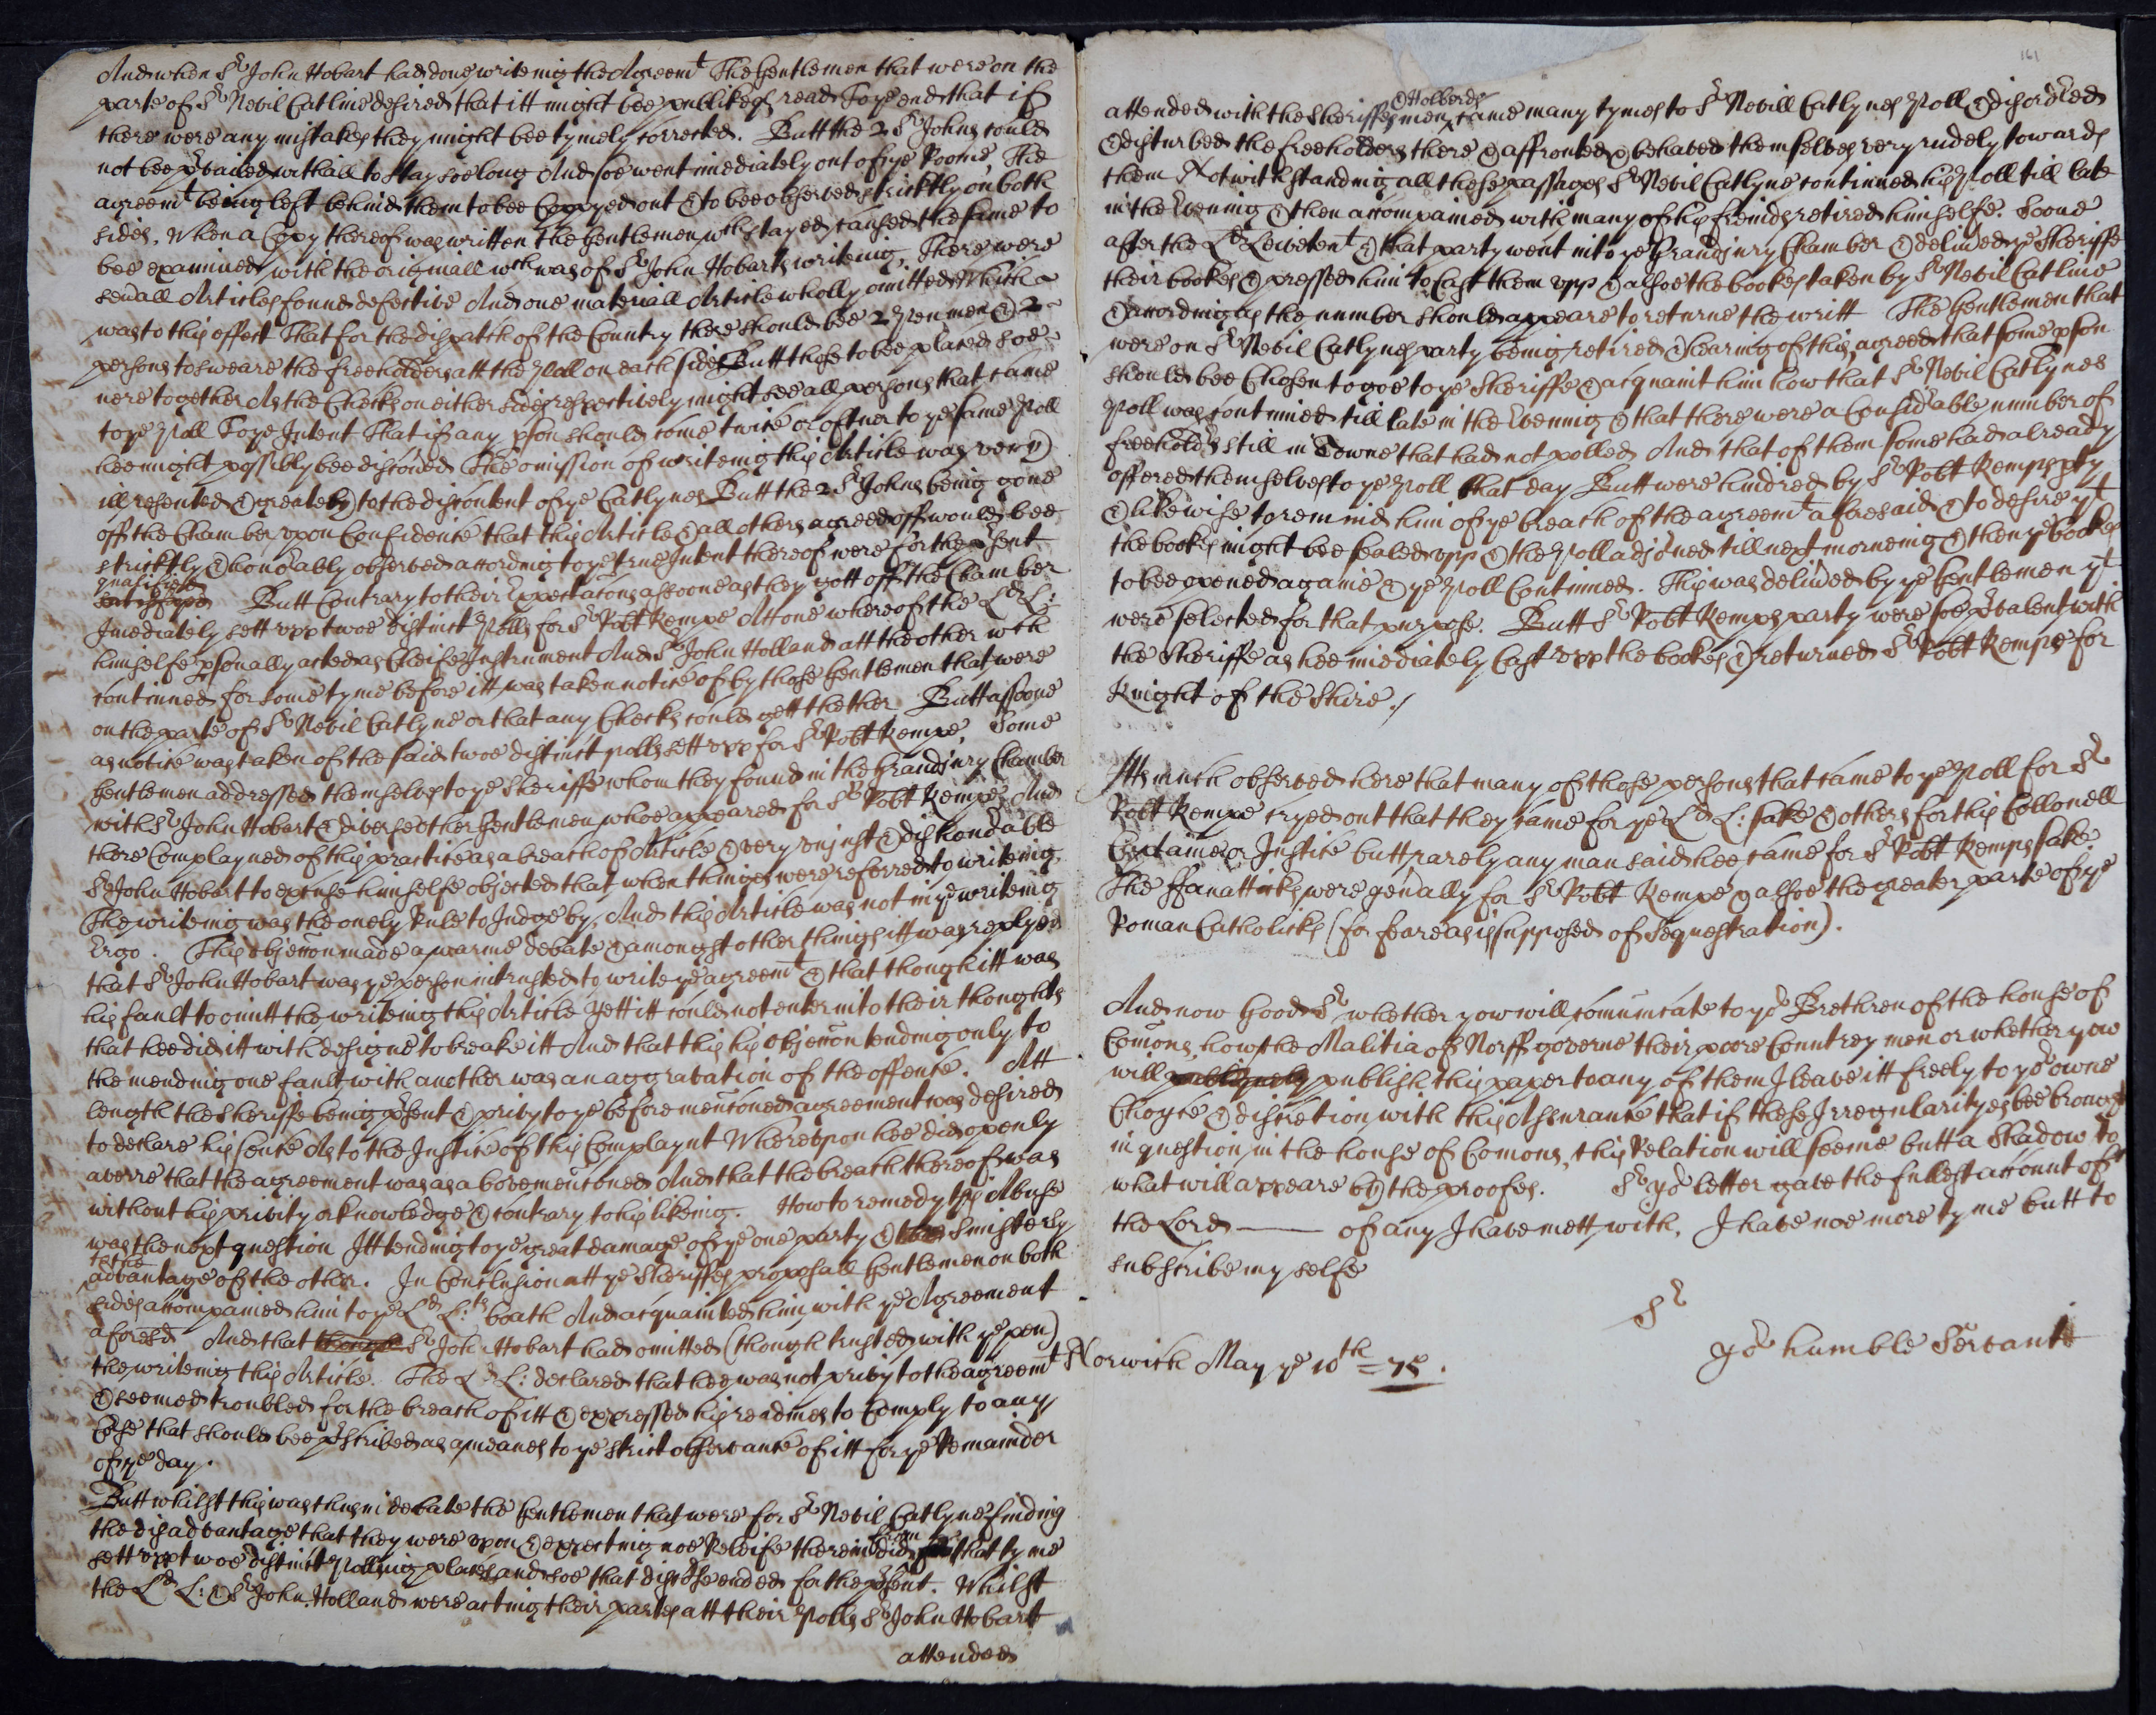 And when Sr John Hobart had done writeing the Agreemt The Gentlemen that were on the
parte of Sr Nevil Catline desired that itt might bee publikely read To ye end that if
there were any mistakes they might bee tymely corrected. Butt the 2 Sr Johns could
not bee pr vailed withall to stay soe long And soe went imediately out of ye Roome The
agreemt being left behind them to bee Copyed out & to bee observed stricktly on both
sides. When a Copy thereof was written the Gentlemen wch stayed caused the same to
bee examined with the originall wch was of Sr John Hobarts writeing, There were
sevall Articles found defective And one materiall Article wholly omitted Which
was to this effect That for the dispatch of the Country there should bee 2 Pen men & 2
persons to sweare the freeholders att the Poll on each side Butt those to bee placed soe
nere together As the Checks on either side respectively might see all persons that came
to ye Poll To ye Intent That if any pson should come twice or oftner to ye same Poll
hee might possibly bee discoved The omission of writeing this Article was very
ill resented & greately to the discontent of ye Catlynes Butt the 2 Sr Johns being gone
off the Chamber upon Confidence that this Article & all others agreed off would bee
stricktly & honorably observed according to ye true Intent thereof were for the prsent
quallifyed
Butt Contrary to their Expectacons assoone as they gott off the Chamber
Imediately sett upp twoe distinct Polls for Sr Robt Kempe Att one whereof the Ld L:
himselfe psonally acted as Cheife Instrument And Sr John Holland att the other wch
continued for some tyme before itt was taken notice of by those Gentlemen that were
on the parte of Sr Nevil Catlyne or that any Checks could gett thether Butt assoone
as notice was taken of the said twoe distinct polls sett upp for Sr Robt Kempe, Some
Gentlemen addressed themselves to ye Sheriffe whom they found in the Grandjury Chamber
with Sr John Hobart & diverse other Gentlemen whoe appeared for Sr Robt Kempe, And
there Complayned of this practice as a breach of Article & very unjust & dishonorable
Sr John Hobart to excuse himselfe objected that when things were referred to writeing,
The writeing was the onely Rule to Judge by, And this Article was not in ye writeing
Ergo. This objeccon made a warme debate & amongst other things itt was replyed
that Sr John Hobart was ye person intrusted to write ye agreemt & that though itt was
his fault to omitt the writeing this Article yett itt could not enter into their thoughts
that hee did itt with designe to breake itt And that this his objeccon tending only to
the mending one fault with another was an aggravation of the offence. Att
length the Sheriffe being prsent & privy to ye before mencioned agreement was desired
to declare his sence As to the Justice of this Complaynt Whereupon hee did openly
averre that the agreement was as abovemencioned And that the breach thereof was
without his privity or knowledge & contrary to his likeing. How to remedy this Abuse
was the next question Itt tending to ye great damage of ye one party & Sinisterly
to the
advantage of the other. In Conclusion att ye Sheriffes proposall Gentlemen on both
sides accompanied him to ye Ld L:ts boath And acquainted him with ye Agreement
aforesd And that though Sr John Hobart had omitted (though trusted with ye pen)
the writeing this Article. The Ld L: declared that hee was not privy to the agreemt
& seemed troubled for the breach of itt & expressed his readines to Comply to any
Cose that should bee pr scribed as a meanes to ye strict observance of itt for ye Remainder
of ye day.
Butt whilst this was thus in debate the Gentlemen that were for Sr Nevil Catlyne finding
the disadvantage that they were upon & expecting noe Releife therein did from that tyme
sett upp twoe distinct Polling places and soe that discorse ended for the prsent. Whilst
the Ld L: & Sr John Holland were acting their partes att their Polls Sr John Hobart
attended
161
attended with the Sheriffes men & Holberds came many tymes to Sr Nevill Catlynes Poll & disordred
& disturbed the freeholders there & affronted & behaved themselves very rudely towards
them Notwithstanding all these passages Sr Nevil Catlyne continued his Poll till late
in the Evening & then accompanied with many of his freinds retired himselfe. Soone
after the Ld Leivetent & that party went into ye Grandjury Chamber & delived ye Sheriffe
their bookes & pressed him to Cast them upp & alsoe the bookes taken by Sr Nevil Catline
& according as the number should appeare to returne the writt The Gentlemen that
were on Sr Nevil Catlynes party being retired & hearing of this, agreed that some pson
should bee Chosen to goe to ye Sheriffe & acquaint him how that Sr Nevil Catlynes
Poll was continued till late in the Evening & that there were a Considrable number of
freeholders still in Towne that had not polled And that of them some had already
offered themselves to ye Poll that day Butt were hindred by Sr Robt Kemps pty
& likewise to remind him of ye breach of the agreemt aforesaid & to desire yt
the bookes might bee sealed upp & the Poll adjorned till next morneing & then ye bookes
to bee opened againe & ye Poll Continued. This was delived by ye Gentlemen yt
were selected for that purpose. Butt Sr Robt Kemps party were soe prvalent with
the Sheriffe as hee imediately Cast upp the bookes & returned Sr Robt Kempe for
Knight of the Shire./
Itts much observed here that many of those persons that came to ye Poll for Sr
Robt Kempe cryed out that they came for ye Ld L: sake & others for this Collonell
Captaine or Justice butt rarely any man said hee came for Sr Robt Kemps sake.
The ffanatticks were genally for Sr Robt Kempe & alsoe the greater parte of ye
Roman Catholicks (for feare as is supposed of Sequestration).
And now Good Sr whether yow will comunicate to yor Brethren of the house of
Comons, how the Malitia of Norff governe their poore Countrey men or whether yow
will publish this paper to any of them I leave itt freely to yor owne
Choyce & discretion with this Assurance that if these Irregularityes bee brought
in question in the house of Comons, this Relation will seeme butt a Shadow to
what will appeare by the proofes. Sr yor letter gave the fullest account of
the Lord —— of any I have mett with. I have noe more tyme butt to
subscribe my selfe
Sr
yor humble Servant
Norwich May ye 10th = 75.